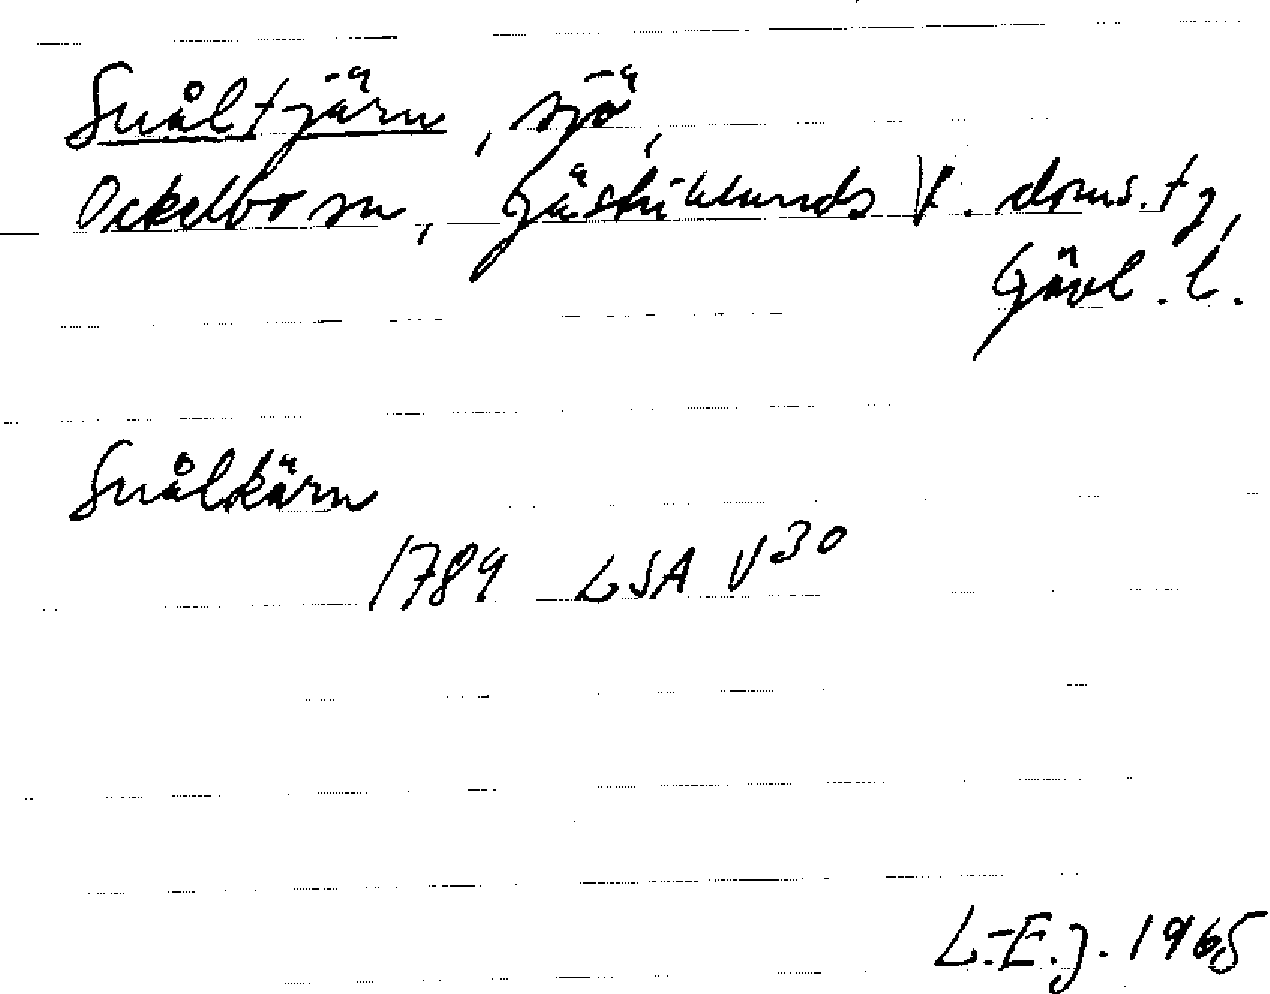 Snåltjärn, sjö,
Ockelbo sn, Gästriklands V. doms.tg,
Gävl. l.
Snålkärn
1789 LSA V30
L.-E.J. 1965